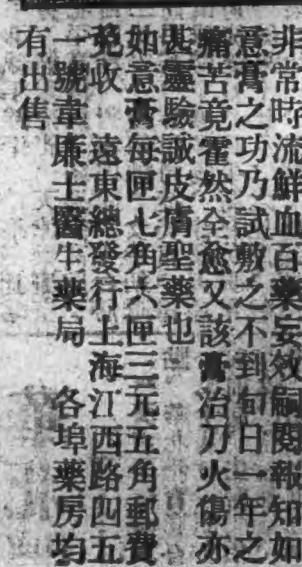 非常時流鮮血百藥妄效嗣閱報知如
意膏之功乃試敷之不到旬日一年之
痛苦竟霍然全愈又該膏治刀火傷亦
甚靈驗誠皮膚聖藥也
如意膏每匣七角六匣三元五角郵費
免收　遠東總發行上海江西路四五
一號韋廉士醫生藥局　各埠藥房均
有出售